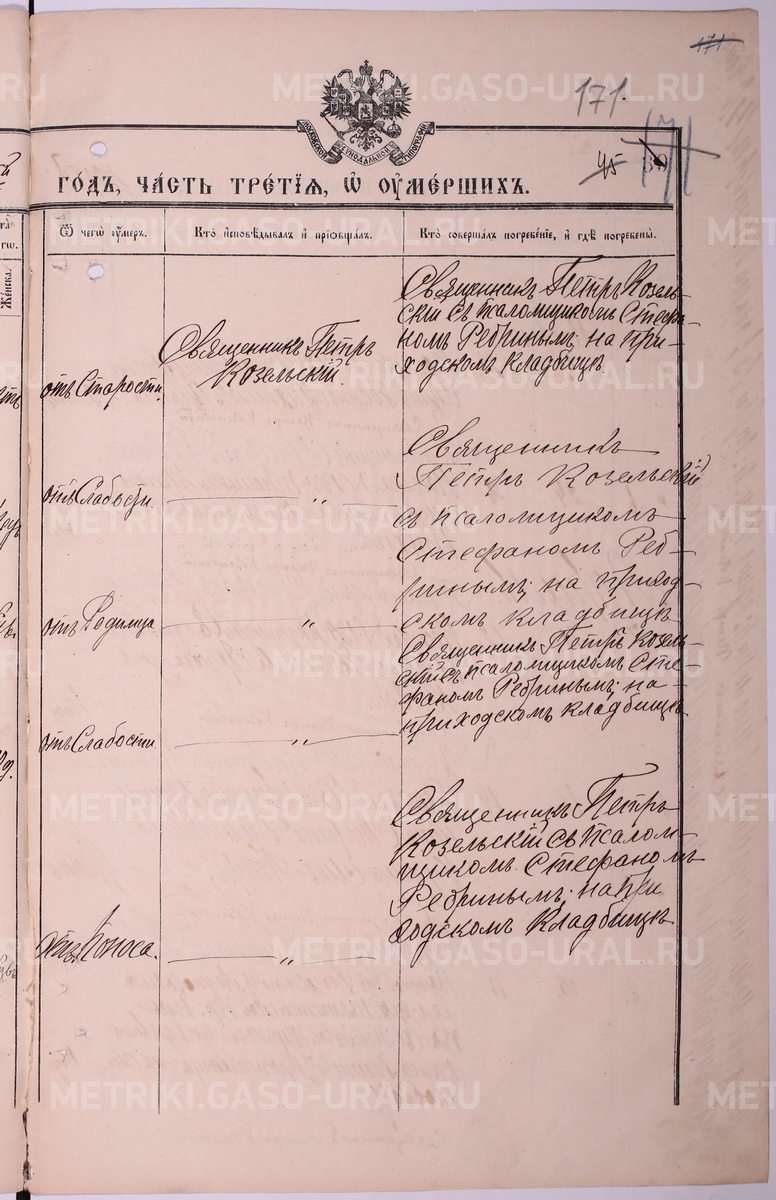 171
171
171
45 39
МОСКОВСКОЙ СѴНОДАЛЬНОЙ ТИПОГРАФІИ
ГОДЪ, ЧАСТЬ ТРЕТІЯ, Ѿ ОУМЕРШИХЪ.
Ѿ чегѡ оумеръ.
Кто исповѣдывалъ и приобщалъ.
Кто совершалъ погребеніе, и гдѣ погребены.
Женска.
отъ Старости.
Священникъ Петръ
Козельскій.
Священникъ Петръ Козель-
скій съ псаломщикомъ Стефа-
номъ Ребринымъ; на при-
ходскомъ кладбищѣ.
отъ Слабости.
„
Священникъ
Петръ Козельскій
съ псаломщикомъ
Стефаномъ Реб-
ринымъ; на приход-
скомъ кладбищѣ
отъ Родимца
„
Священникъ Петръ Козель-
скій съ псаломщикомъ Сте-
фаномъ Ребринымъ; на
приходскомъ кладбищѣ
отъ Слабости.
„
Священникъ Петръ
Козельскій съ псалом-
щикомъ Стефаномъ
Ребринымъ; на при
ходскомъ кладбищѣ
отъ Поноса.
„
METRIKI.GASO-URAL.RU